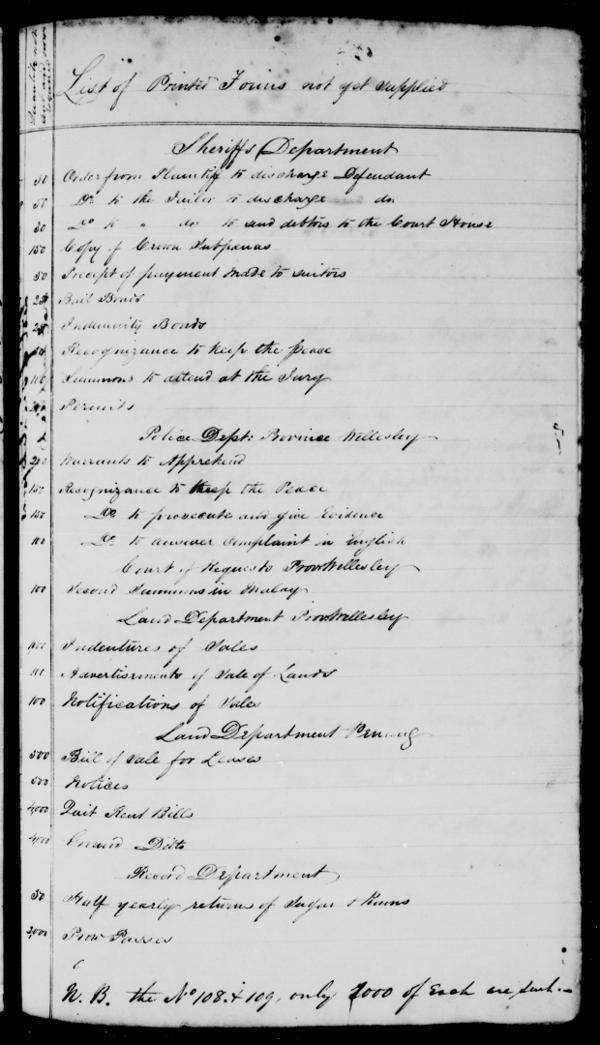 List of Printed Forms not yet supplied
Sheriffs Department
50 Order from Plaintiff to discharge Defendant
50 Do to the Jailer to discharge do
30 Do to " do to send debtors to the Court House
150 Copy of Crown Subpœnas
50 Receipt of payment made to suitors
Bail Bonds
Indemnity Bonds
50 Recognizance to keep the peace
Summons to attend at the Jury
Permits
Police Dept: Province Wellesley
200 Warrants to Apprehend
150 Recognizance to keep the Peace
100 Do to prosecute and give Evidence
100 Do to answer Complaint in English
Court of Requests Prov Wellesley
100 Second Summons in Malay
Land Department Prov Wellesley
Indentures of Sales
Advertisements of Sale of Lands
100 Notifications of Sales
Land Department Penang
500 Bill of Sale for Leases
500 Notices
4,000 Quit Rent Bills
4,000 Ground Ditto
Record Department
50 Half yearly returns of Sugar & Rums
2,000 Prow Passes
N. B. the No 108 & 109, only 1000 of Each are sent